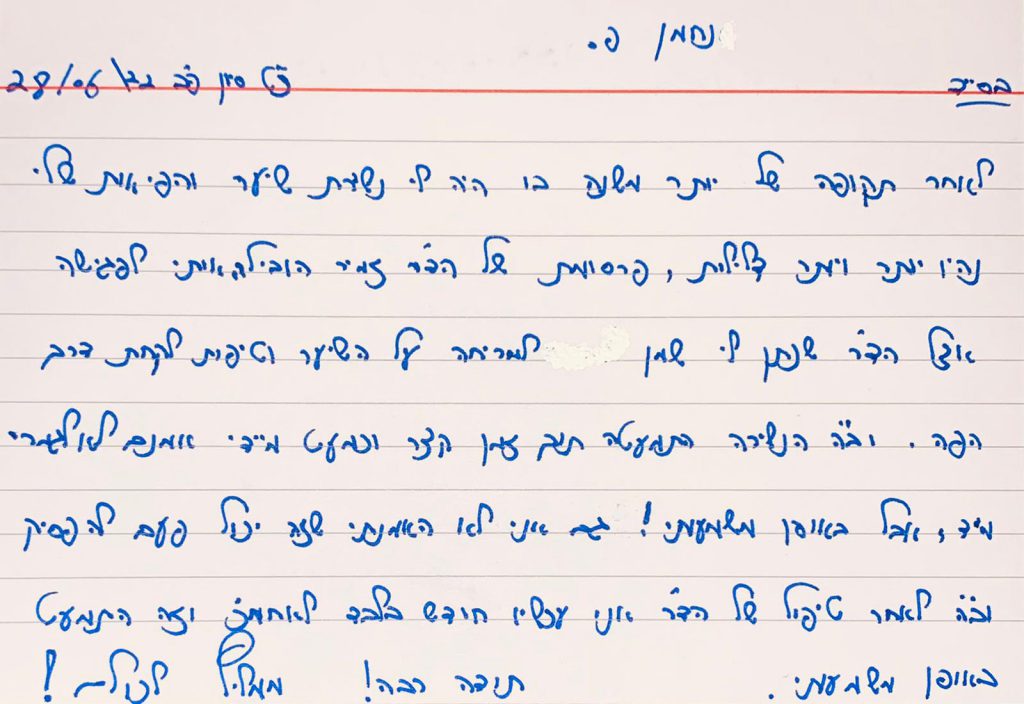 נחמן פ.
בס״ד
כ״ט סיון פ״ב 28/06/22
לאחר תקופה של יותר משנה בו היה לי נשירת שיער והפיאות שלי
נהיו יותר ויותר דלילות, פרסומת של הד״ר זמיר הובילה אותי לפגישה
אצל הד״ר שנתן לי שמן למריחה על השיער וטיפות לקחת דרך
הפה. וב״ה הנשירה התמעטה תוך זמן קצר וכמעט מיידי אומנם לא לגמרי
מיד, אבל באופן משמעותי! גם אני לא האמנתי שזה יכול פעם להפסיק
וב״ה לאחר טיפול של הד״ר אני עכשיו חודש בלבד לאחמ״כ וזה התמעט
באופן משמעותי. תודה רבה! ממליץ לכולם!